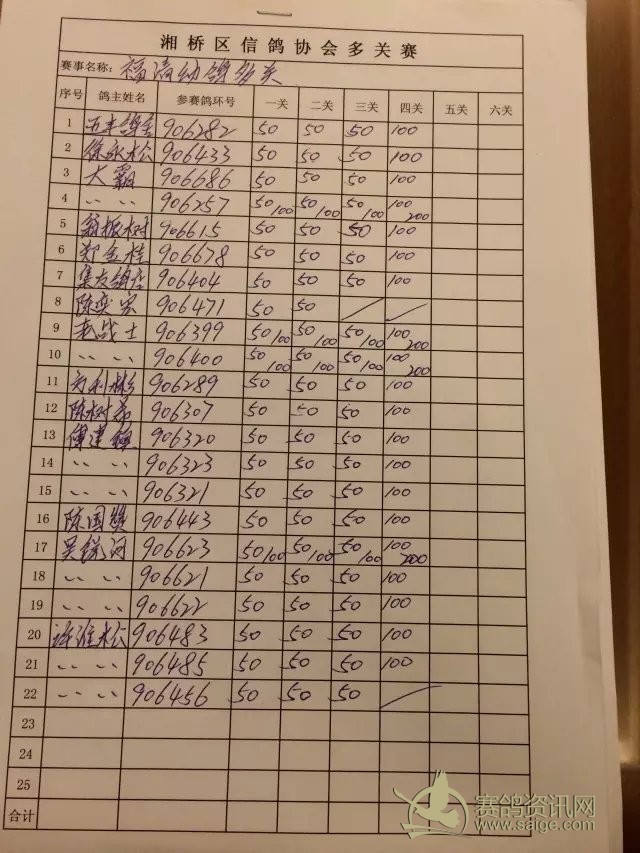 湘桥区信鸽协会多关赛
赛事名称：福清幼鸽多关
序号 鸽主姓名 参赛鸽环号 一关 二关 三关 四关 五关 六关
1 906282 50 50 50 100
2 徐永松 906433 50 50 50 100
3 大霸 906686 50 50 50 100
4 〃 〃 906257 50/100 50/100 50/100 100/200
5 振树 906615 50 50 50 100
6 郑金桂 906678 50 50 50 100
7 集友鸽 906404 50 50 50 100
8 陈奕 906471 50 50 / /
9 老战士 906399 50/100 50/100 50/100 100/200
10 〃 〃 906400 50/100 50/100 50/100 100/200
11 利彬 906289 50 50 50 100
12 陈树 906307 50 50 50 100
13 傅建 906320 50 50 50 100
14 〃 〃 906323 50 50 50 100
15 〃 〃 906321 50 50 50 100
16 陈国 906443 50 50 50 100
17 吴 906623 50/100 50/100 50/100 100/200
18 〃 〃 906621 50 50 50 100
19 〃 〃 906622 50 50 50 100
20 许淮松 906483 50 50 50 100
21 〃 〃 906485 50 50 50 100
22 〃 〃 906456 50 50 50 /
23
24
25
合计
赛鸽资讯网
www.saige.com